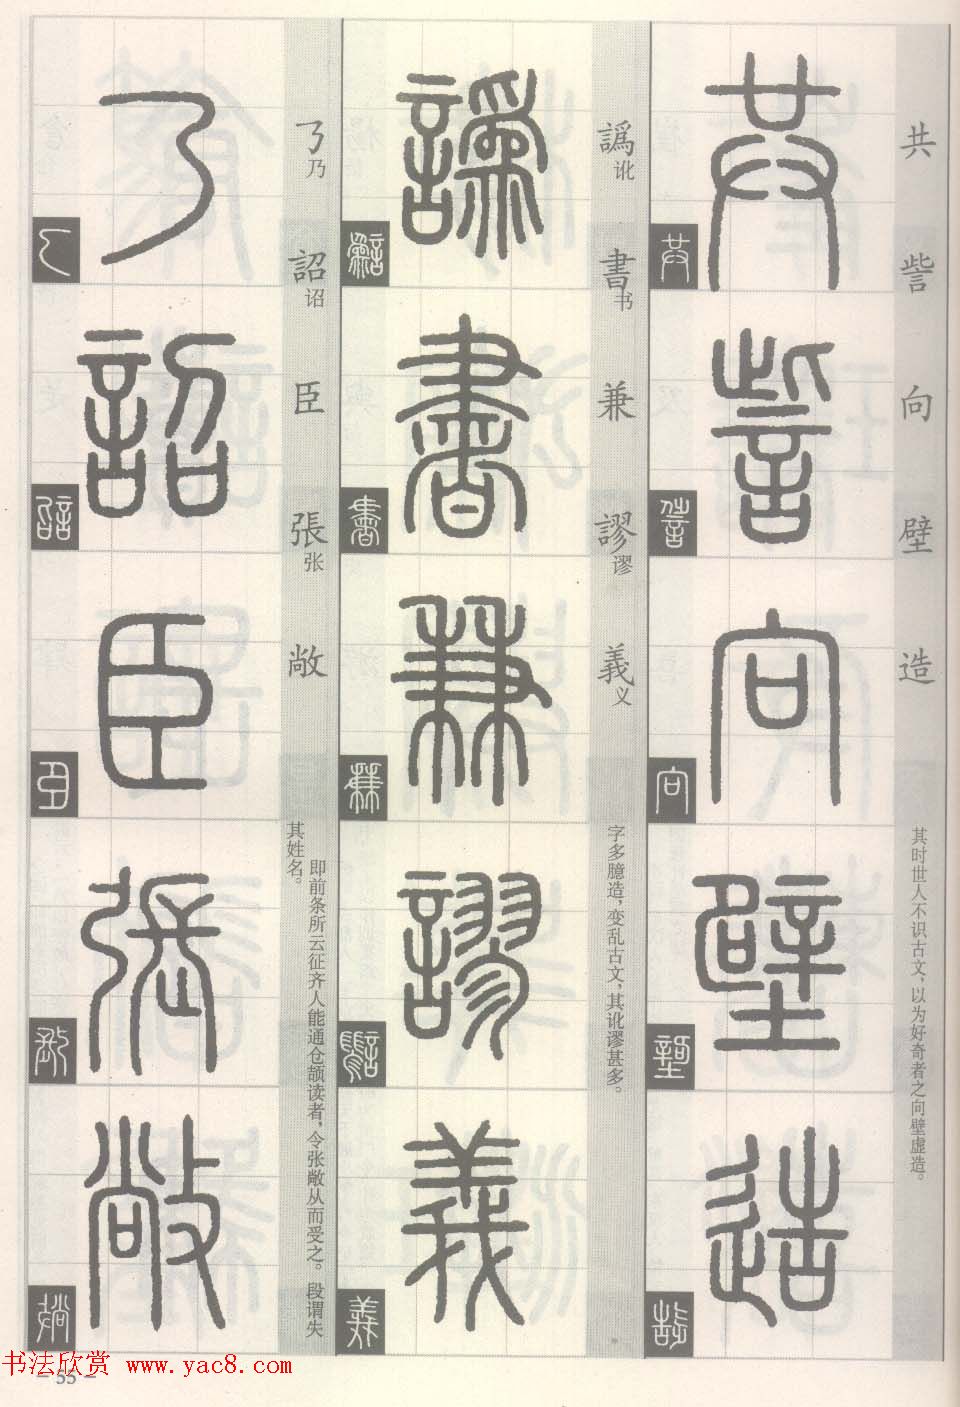 共
訾
向
壁
造
共訾向壁造
其时世人不识古文，以为好奇者之向壁虚造。
譌
書
兼
謬
義
譌讹
書书
兼
謬谬
義义
字多臆造，变乱古文，其讹谬甚多。
乃
詔
臣
張
敞
乃
詔诏
臣
張张
敞
即前条所云征齐人能通仓颉读者，令张敞从而受之。段谓失
其姓名。
书法欣赏 www.yac8.com
- 55 -